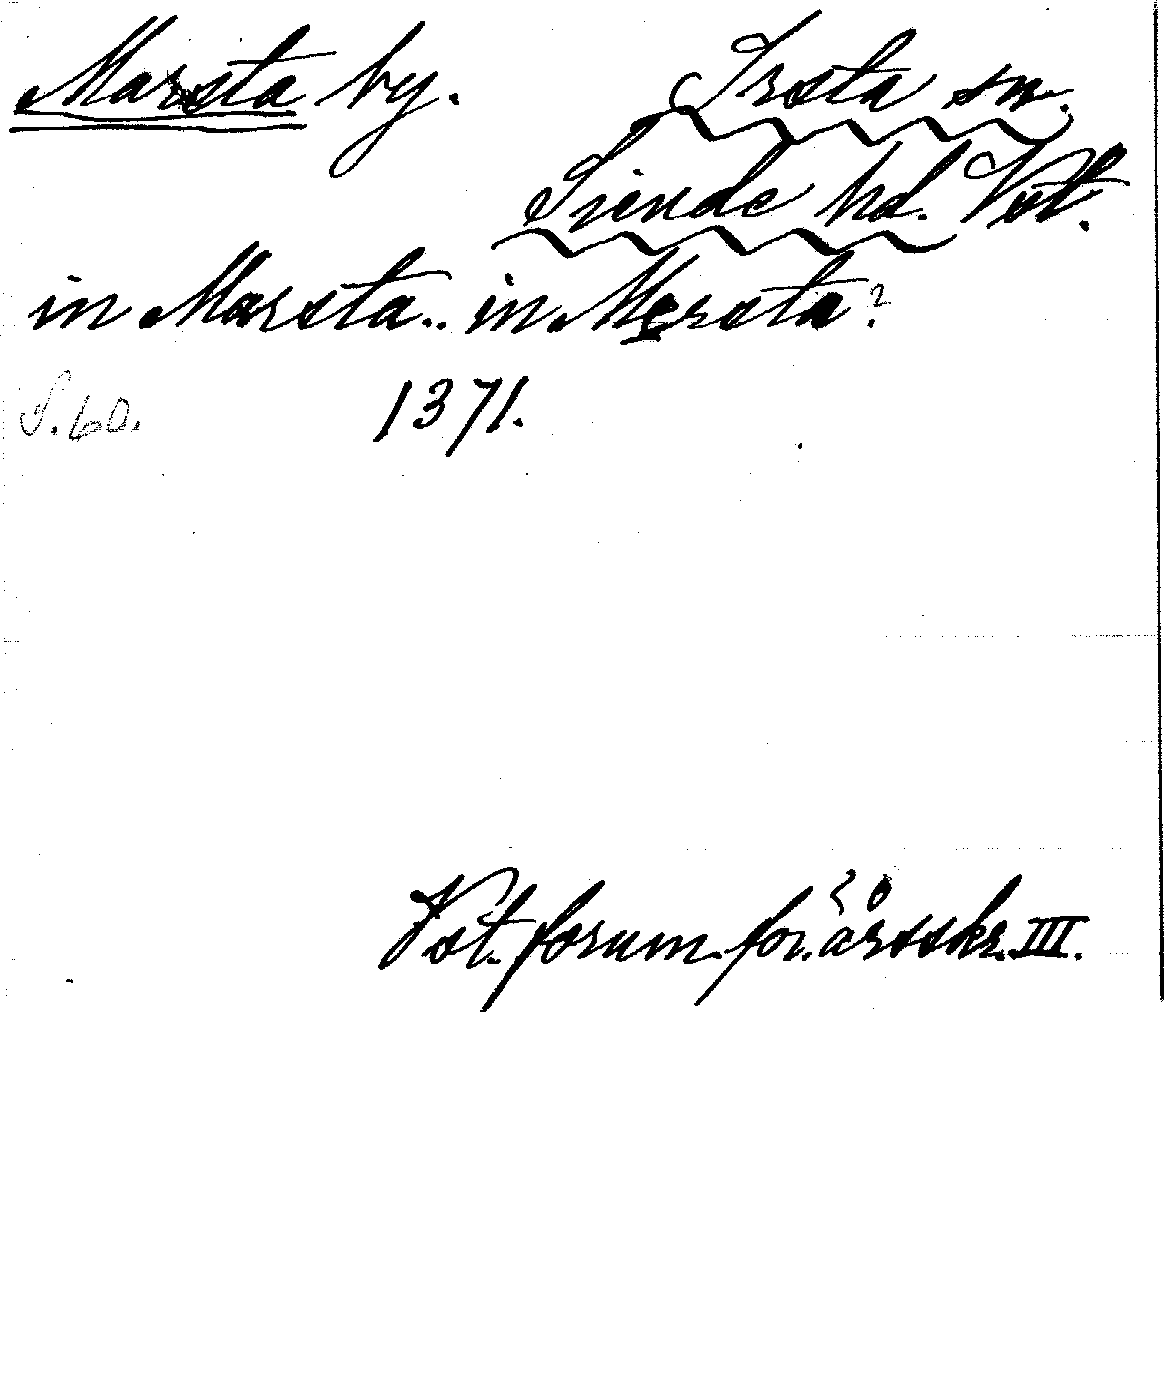 Marsta by. Irsta sn.
Siende hd. Vstl.
in Marsta.. in Mersta?
S. 60. 1371.
Vstl. fornm. för. årsskr. III.